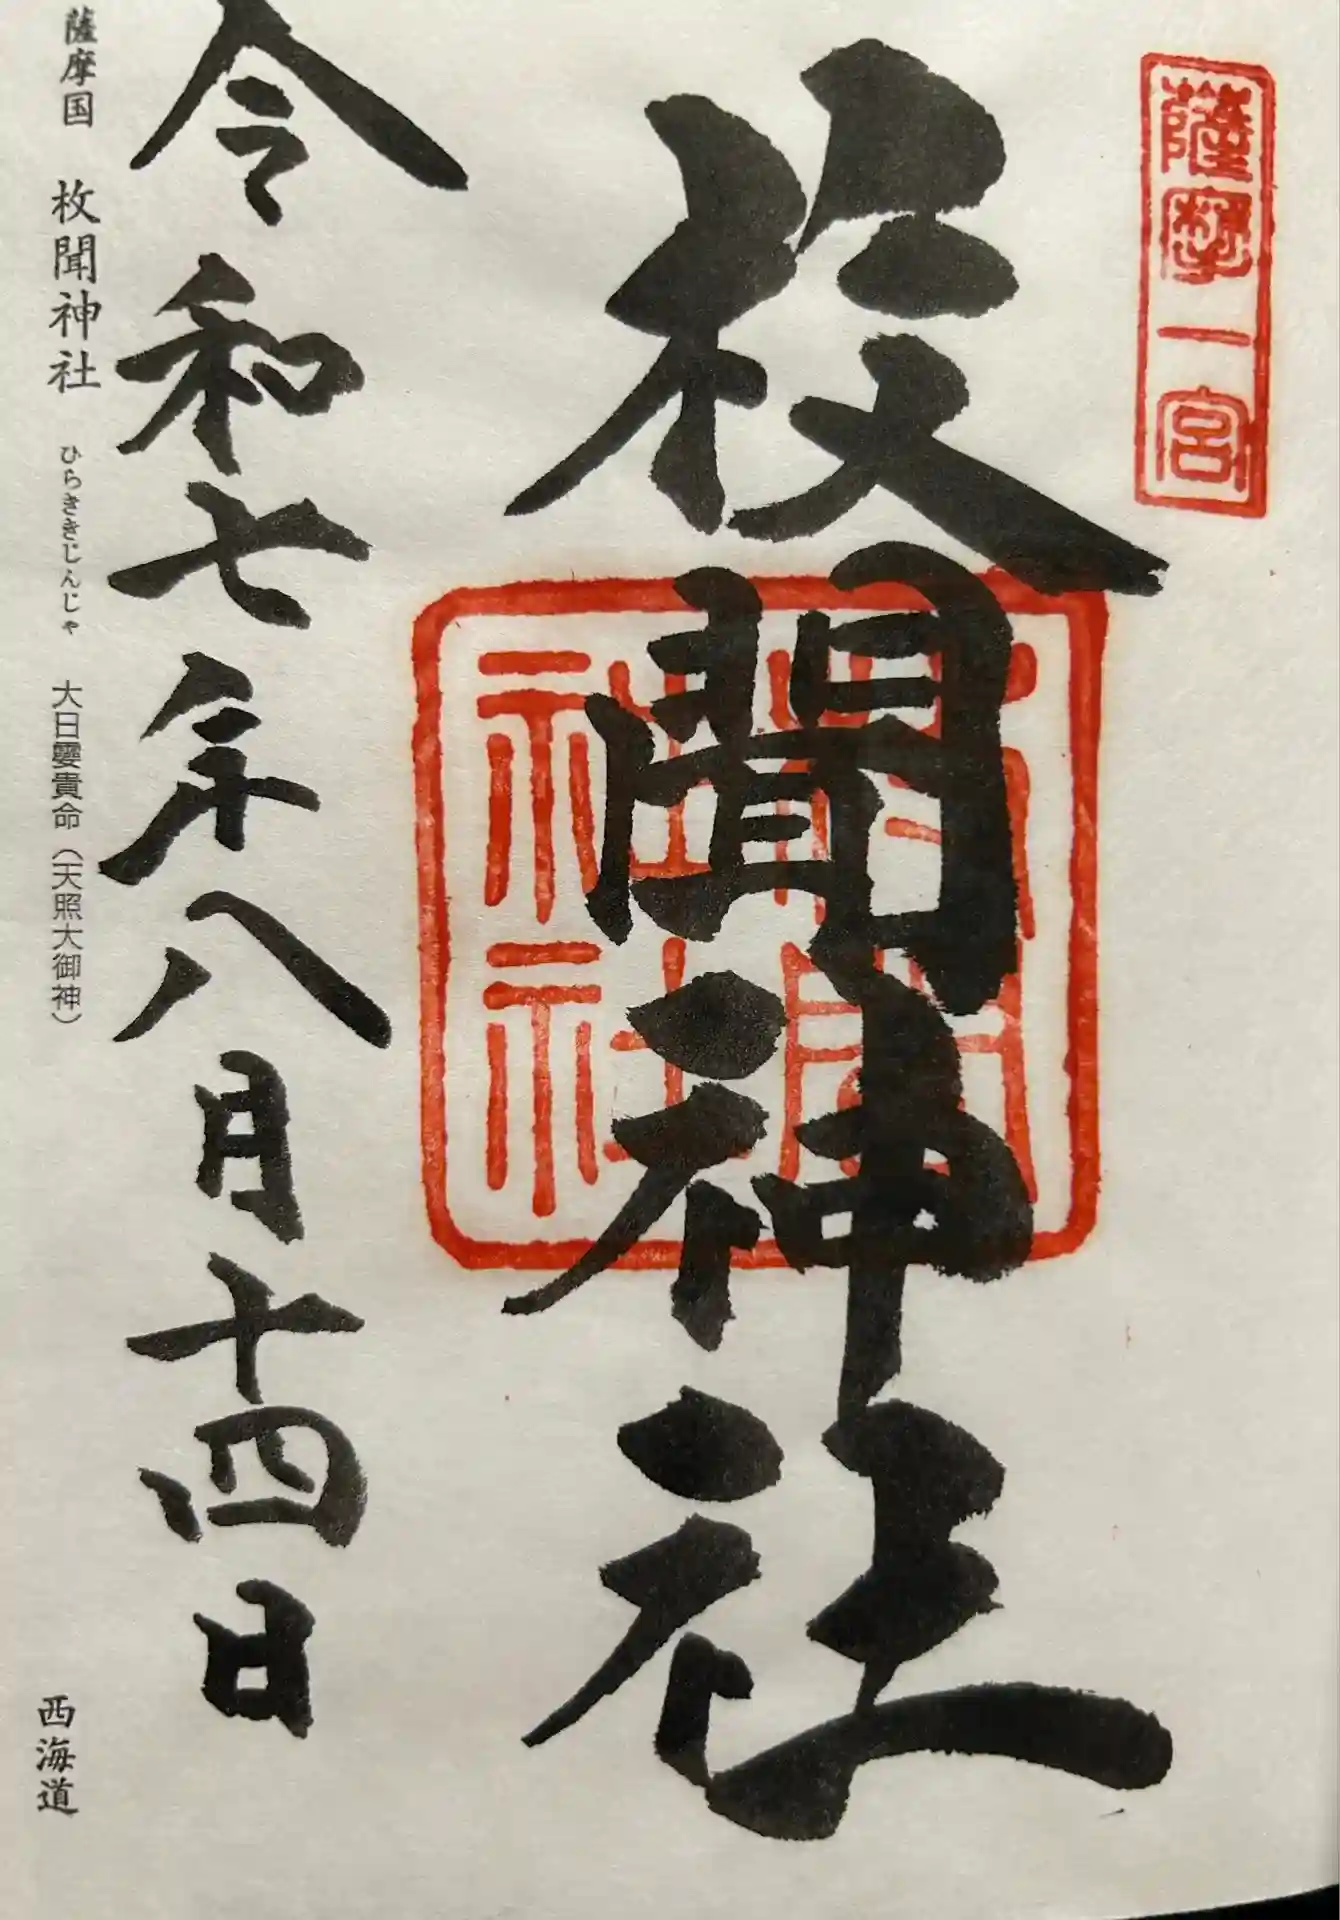 薩摩一宮
枚聞神社
枚聞
神社
令和七年八月十四日
薩摩国 枚聞神社 ひらききじんじゃ 大日孁貴命（天照大御神）
西海道